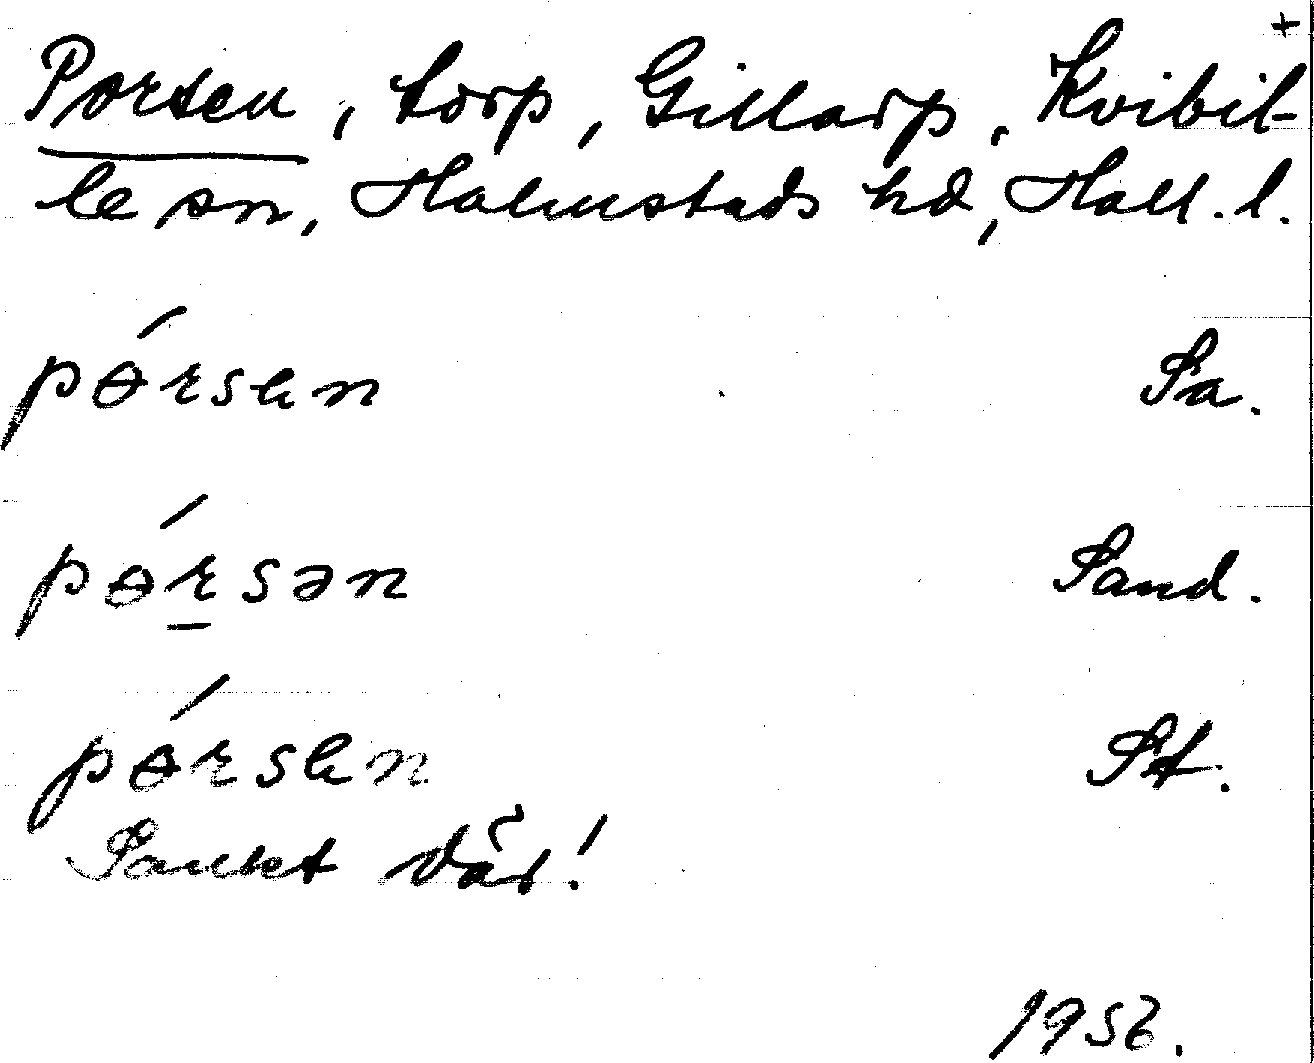 +
Porsen, torp, Gillarp, Kvibil-
le sn, Halmstads hd, Hall. l.
pɵ́rsen Sa.
pɵ́rsən Sand.
pɵ́rsen St.
Sankt där!
1956.